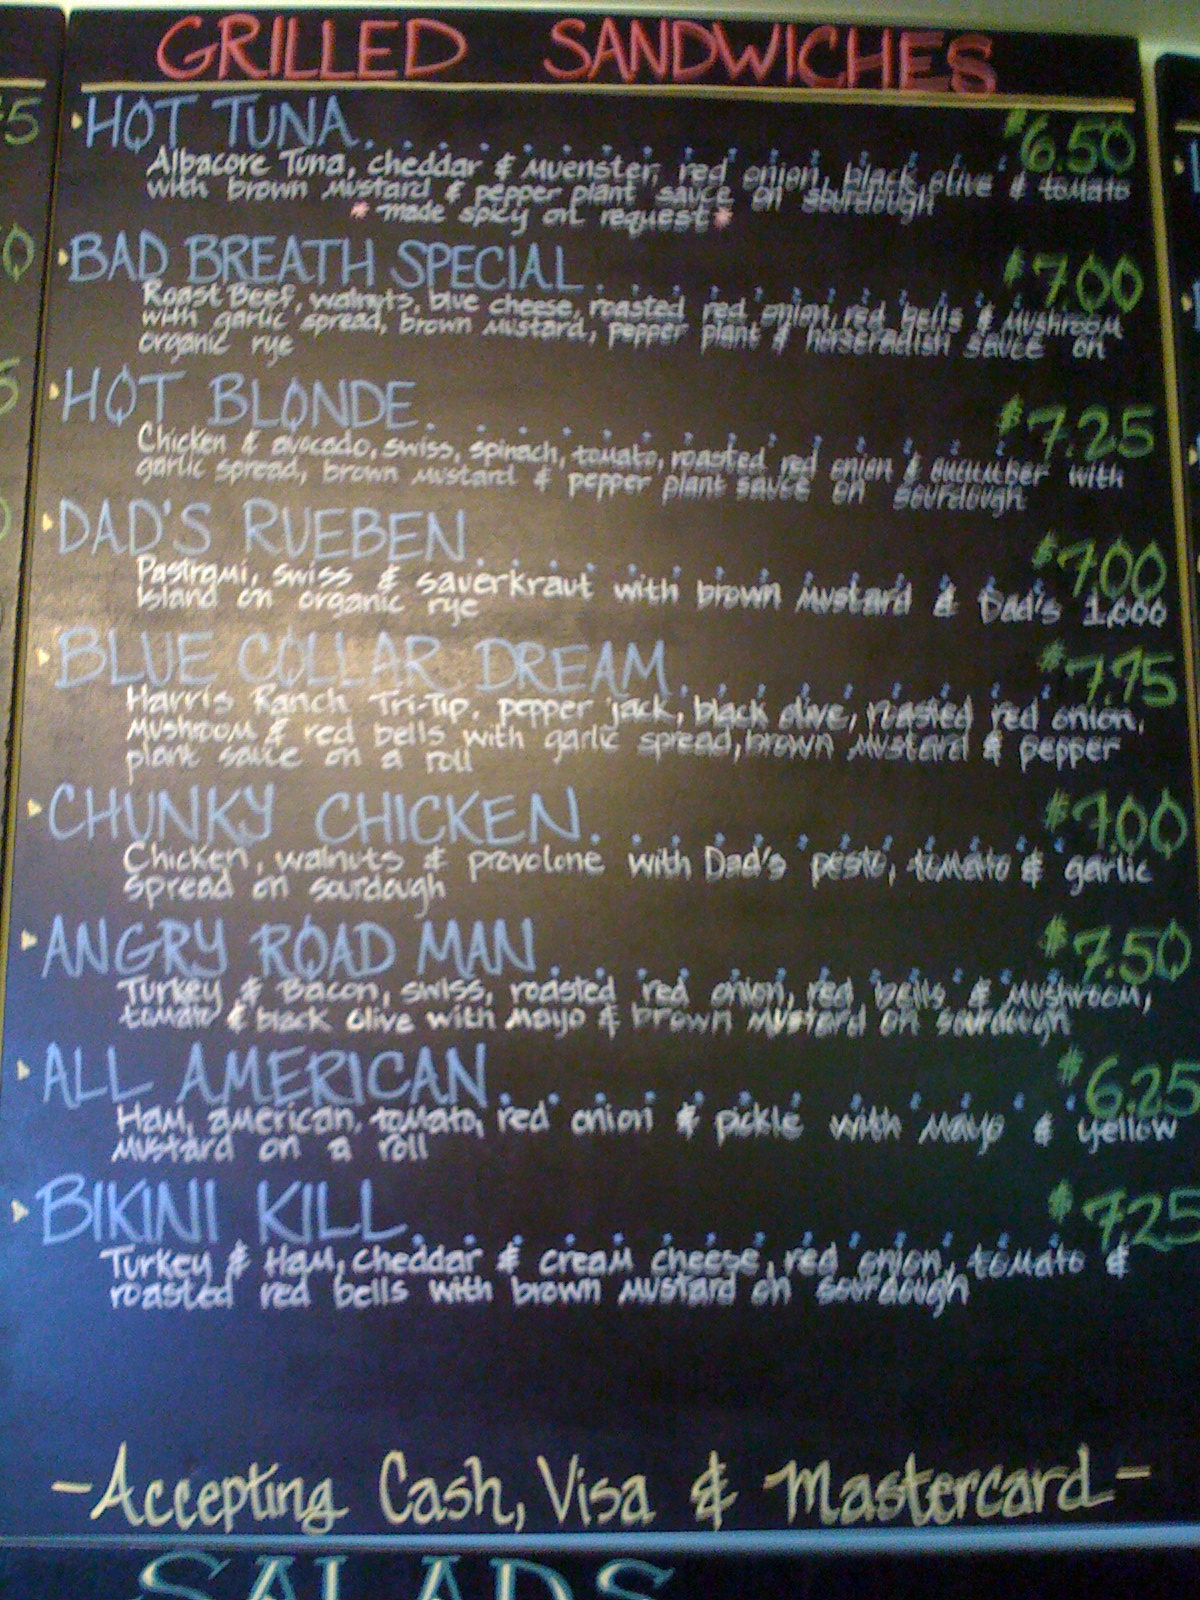 GRILLED SANDWICHES
HOT TUNA $6.50
Albacore Tuna, cheddar & muenster, red onion, black olive & tomato
with brown mustard & pepper plant sauce on sourdough
*made spicy on request*
BAD BREATH SPECIAL $7.00
Roast Beef, walnuts, blue cheese, roasted red onion, red bells & mushroom
with garlic spread, brown mustard, pepper plant & horseradish sauce on
organic rye
HOT BLONDE $7.25
Chicken & avocado, swiss, spinach, tomato, roasted red onion & cucumber with
garlic spread, brown mustard & pepper plant sauce on sourdough
DAD'S RUEBEN $7.00
Pastrami, swiss & sauerkraut with brown mustard & Dad's 1,000
Island on organic rye
BLUE COLLAR DREAM $7.75
Harris Ranch Tri-Tip, pepper jack, black olive, roasted red onion,
mushroom & red bells with garlic spread, brown mustard & pepper
plant sauce on a roll
CHUNKY CHICKEN $7.00
Chicken, walnuts & provolone with Dad's pesto, tomato & garlic
spread on sourdough
ANGRY ROAD MAN $7.50
Turkey & Bacon, swiss, roasted red onion, red bells & mushroom,
tomato & black olive with mayo & brown mustard on sourdough
ALL AMERICAN $6.25
Ham, american, tomato, red onion & pickle with mayo & yellow
mustard on a roll
BIKINI KILL $7.25
Turkey & Ham, cheddar & cream cheese, red onion, tomato &
roasted red bells with brown mustard on sourdough
-Accepting Cash, Visa & Mastercard-
SALADS